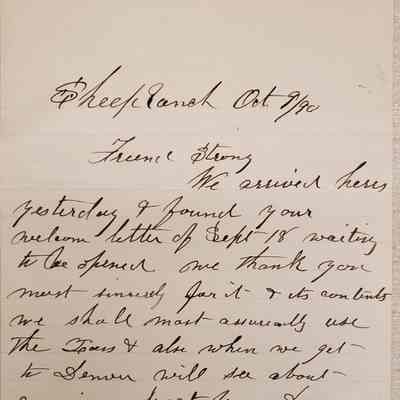 Sheep Ranch Oct 9/90
Friend Strong
We arrived here
yesterday & found your
welcom letter of Sept 18 waiting
to be opened we thank you
most sincerely for it & its contents
we shall most assuredly use
the & also when we get
to Denver will see about